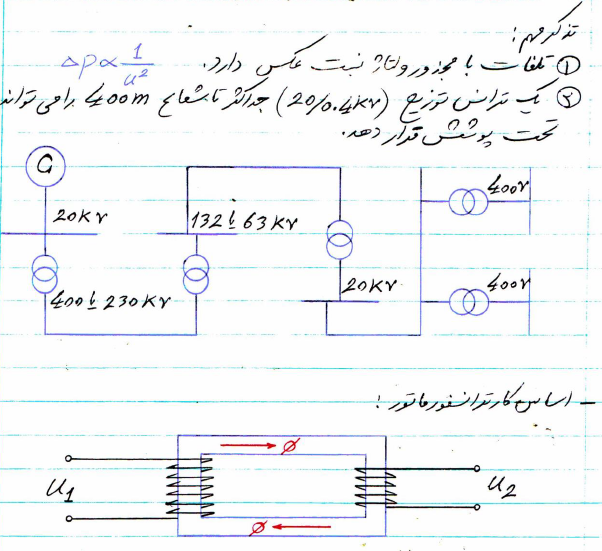 تذکر مهم:
① تلفات با مجذور ولتاژ نسبت عکس دارد. ΔP∝1/u²
② یک ترانس توزیع (20/0.4kv) حداکثر تا شعاع 400m را می تواند
تحت پوشش قرار دهد.
G
20kv
400 یا 230kv
132 یا 63kv
20kv
400v
400v
- اساس کار ترانسفورماتور:
u1
φ
φ
u2